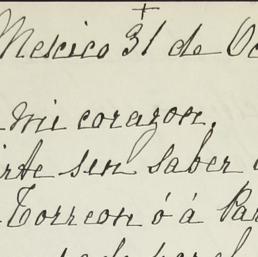 Mexico 31 de Oc
mi corazon.
irte sin saber
Torreon ó á Par